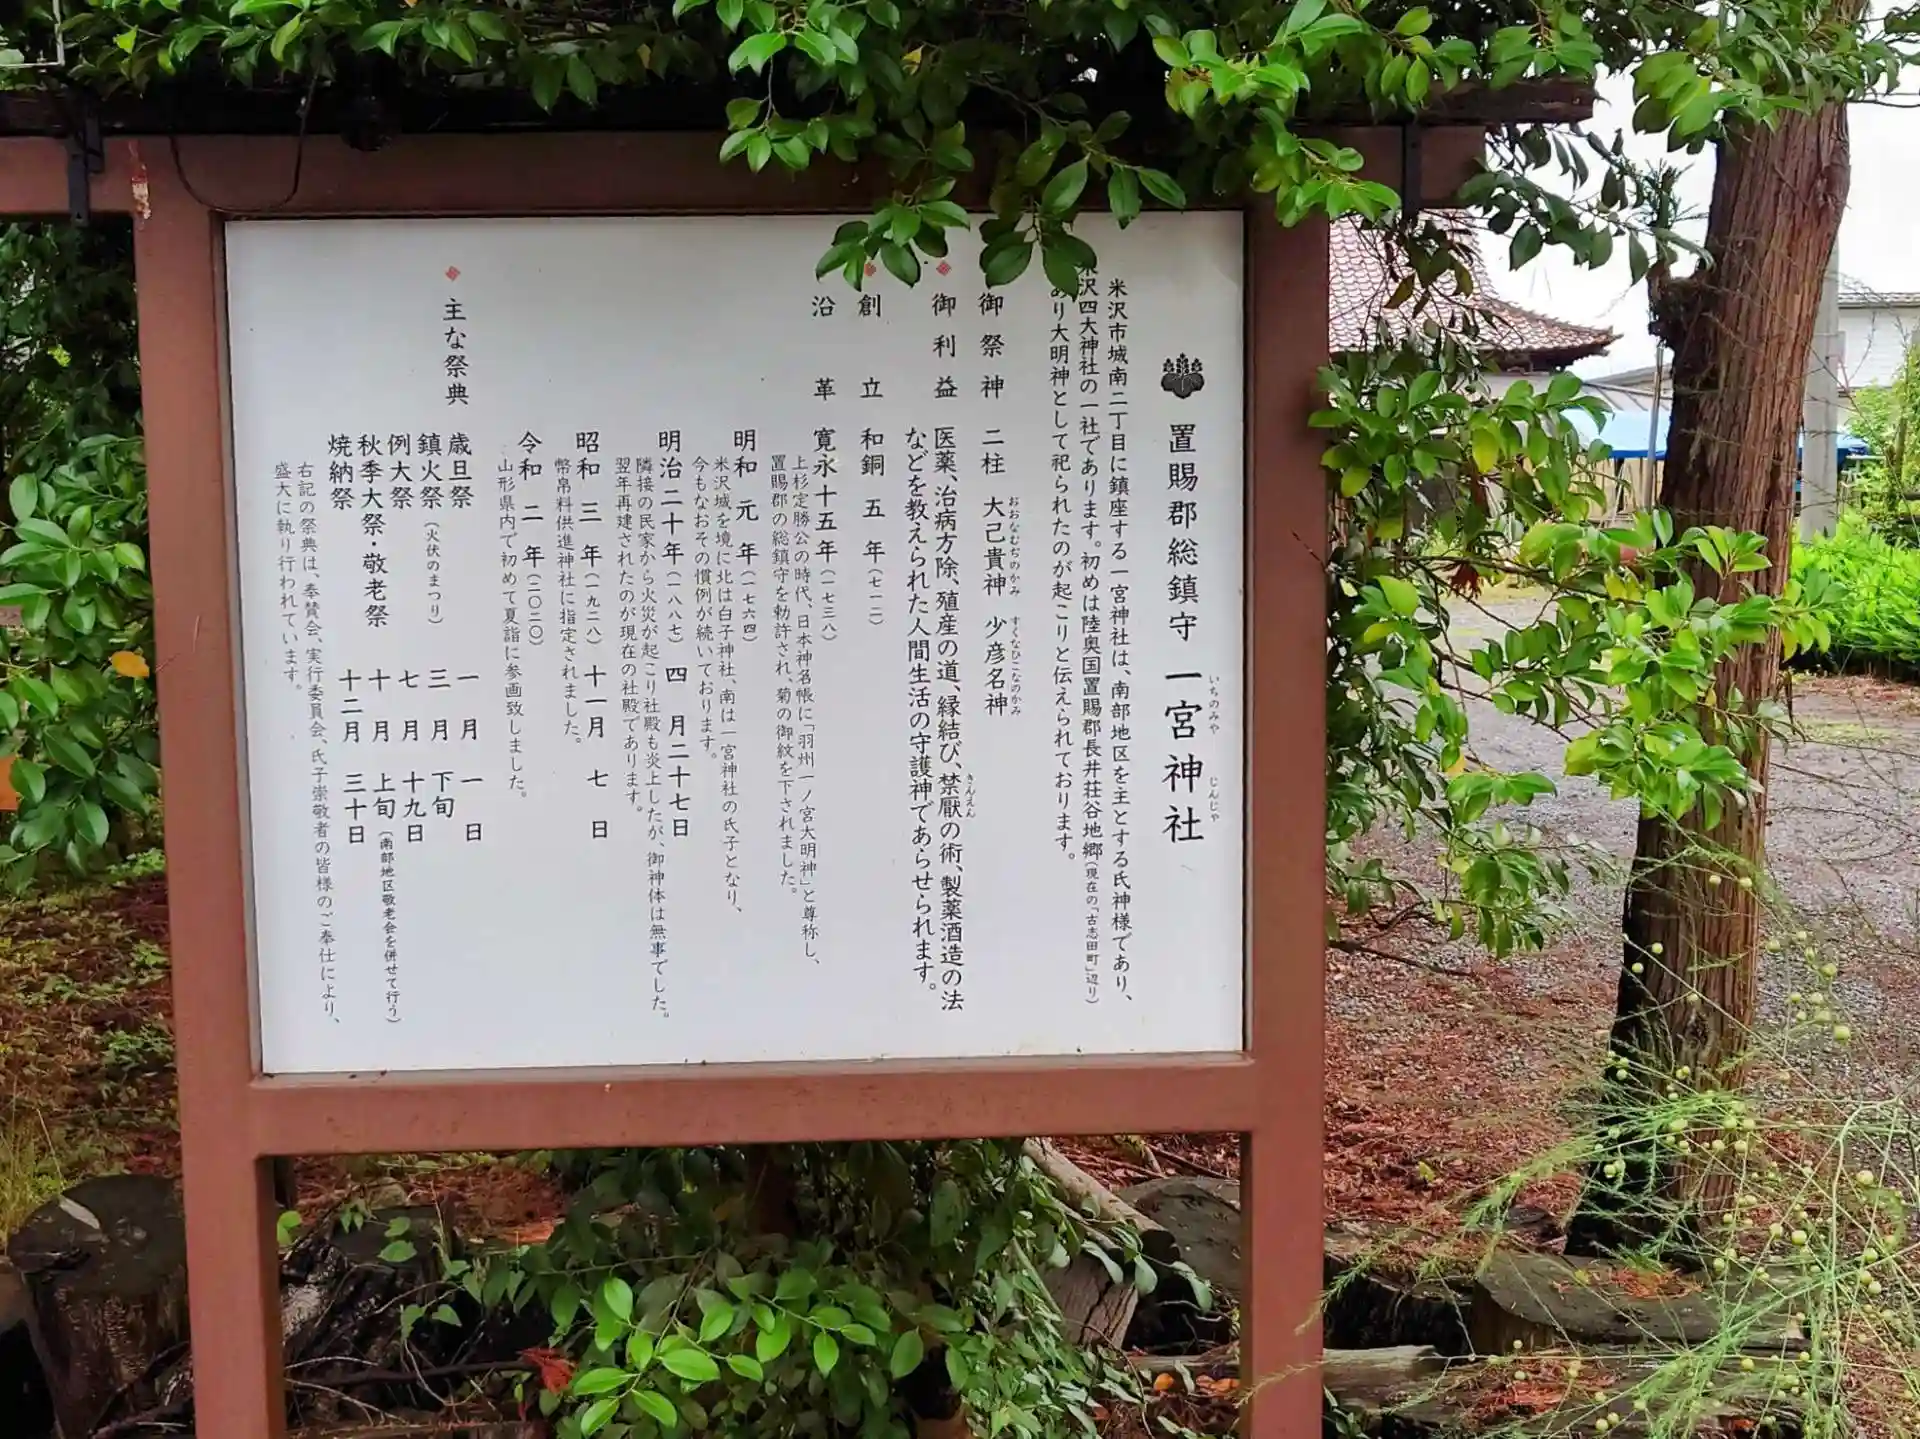 置賜郡総鎮守 一宮神社
いちのみや じんじゃ
米沢市城南二丁目に鎮座する一宮神社は、南部地区を主とする氏神様であり、
米沢四大神社の一社であります。初めは陸奥国置賜郡長井荘谷地郷(現在の「古志田町」辺り)
あり大明神として祀られたのが起こりと伝えられております。
御祭神 二柱 大己貴神 少彦名神
おおなむぢのかみ すくなひこなのかみ
御利益 医薬、治病方除、殖産の道、縁結び、禁厭の術、製薬酒造の法
きんえん
などを教えられた人間生活の守護神であらせられます。
創立 和銅五年(七一二)
沿革 寛永十五年(一七三八)
上杉定勝公の時代、日本神名帳に「羽州一ノ宮大明神」と尊称し、
置賜郡の総鎮守を勅許され、菊の御紋を下されました。
明和元年(一七六四)
米沢城を境に北は白子神社、南は一宮神社の氏子となり、
今もなおその慣例が続いております。
明治二十年(一八八七)四月二十七日
隣接の民家から火災が起こり社殿も炎上したが、御神体は無事でした。
翌年再建されたのが現在の社殿であります。
昭和三年(一九二八)十一月七日
幣帛料供進神社に指定されました。
令和二年(二〇二〇)
山形県内で初めて夏詣に参画致しました。
主な祭典
歳旦祭 一月一日
鎮火祭(火伏のまつり) 三月下旬
例大祭 七月十九日
秋季大祭・敬老祭 十月上旬(南部地区敬老会を併せて行う)
焼納祭 十二月三十日
右記の祭典は、奉賛会、実行委員会、氏子崇敬者の皆様のご奉仕により、
盛大に執り行われています。